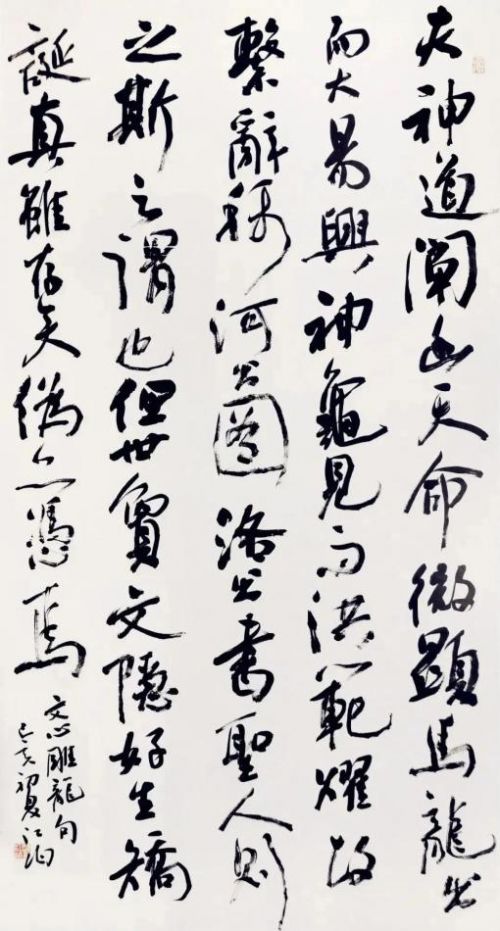 夫神道闡幽天命微顯馬龍出
而大易興神龜見而洪範燿故
繫辭稱河出圖洛出書聖人則
之斯之謂也但世敻文隱好生矯
誕真雖存矣偽亦憑焉
文心雕龍句
己亥初夏江泊